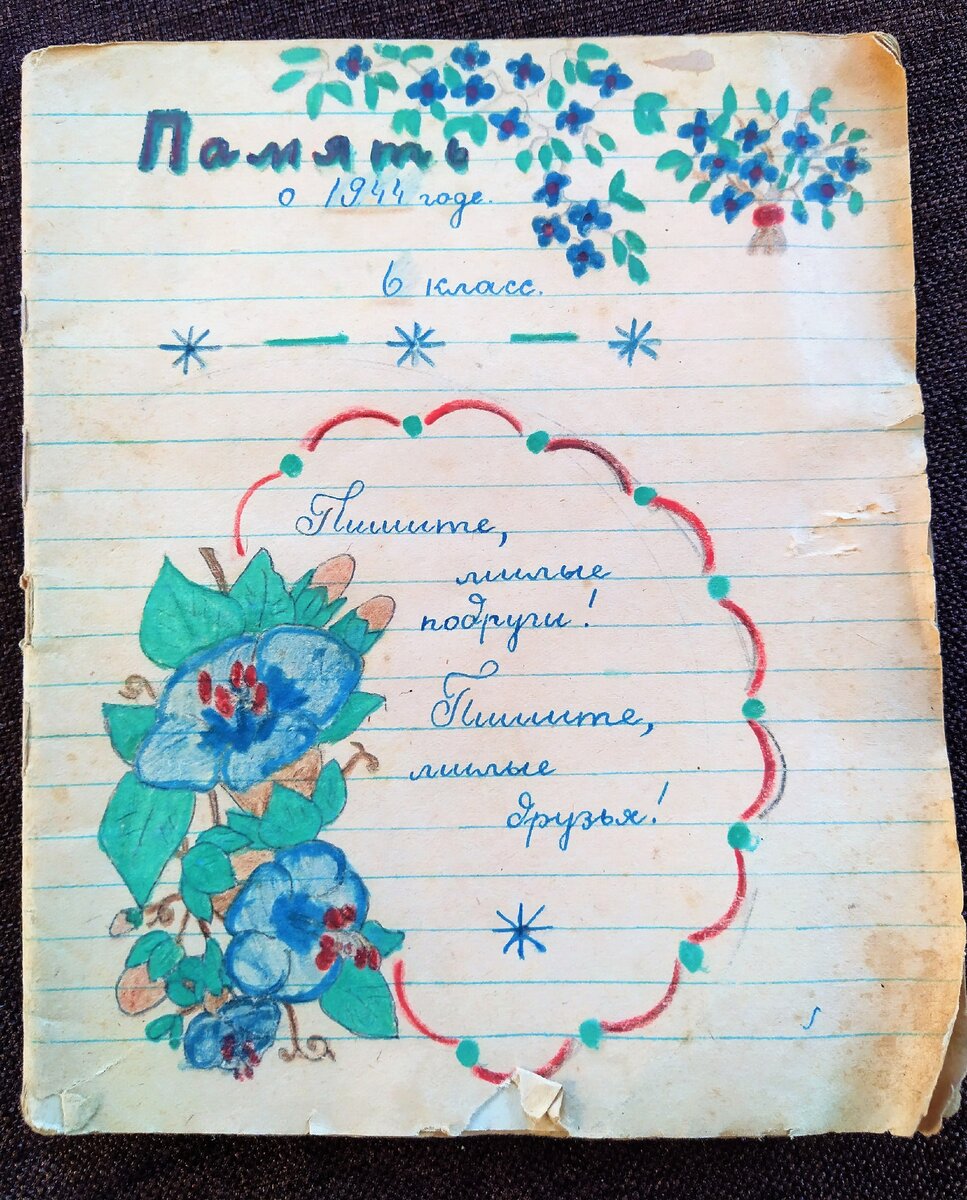 Память
о 1944 годе.
6 класс.
Пишите,
милые
подруги!
Пишите,
милые
друзья!